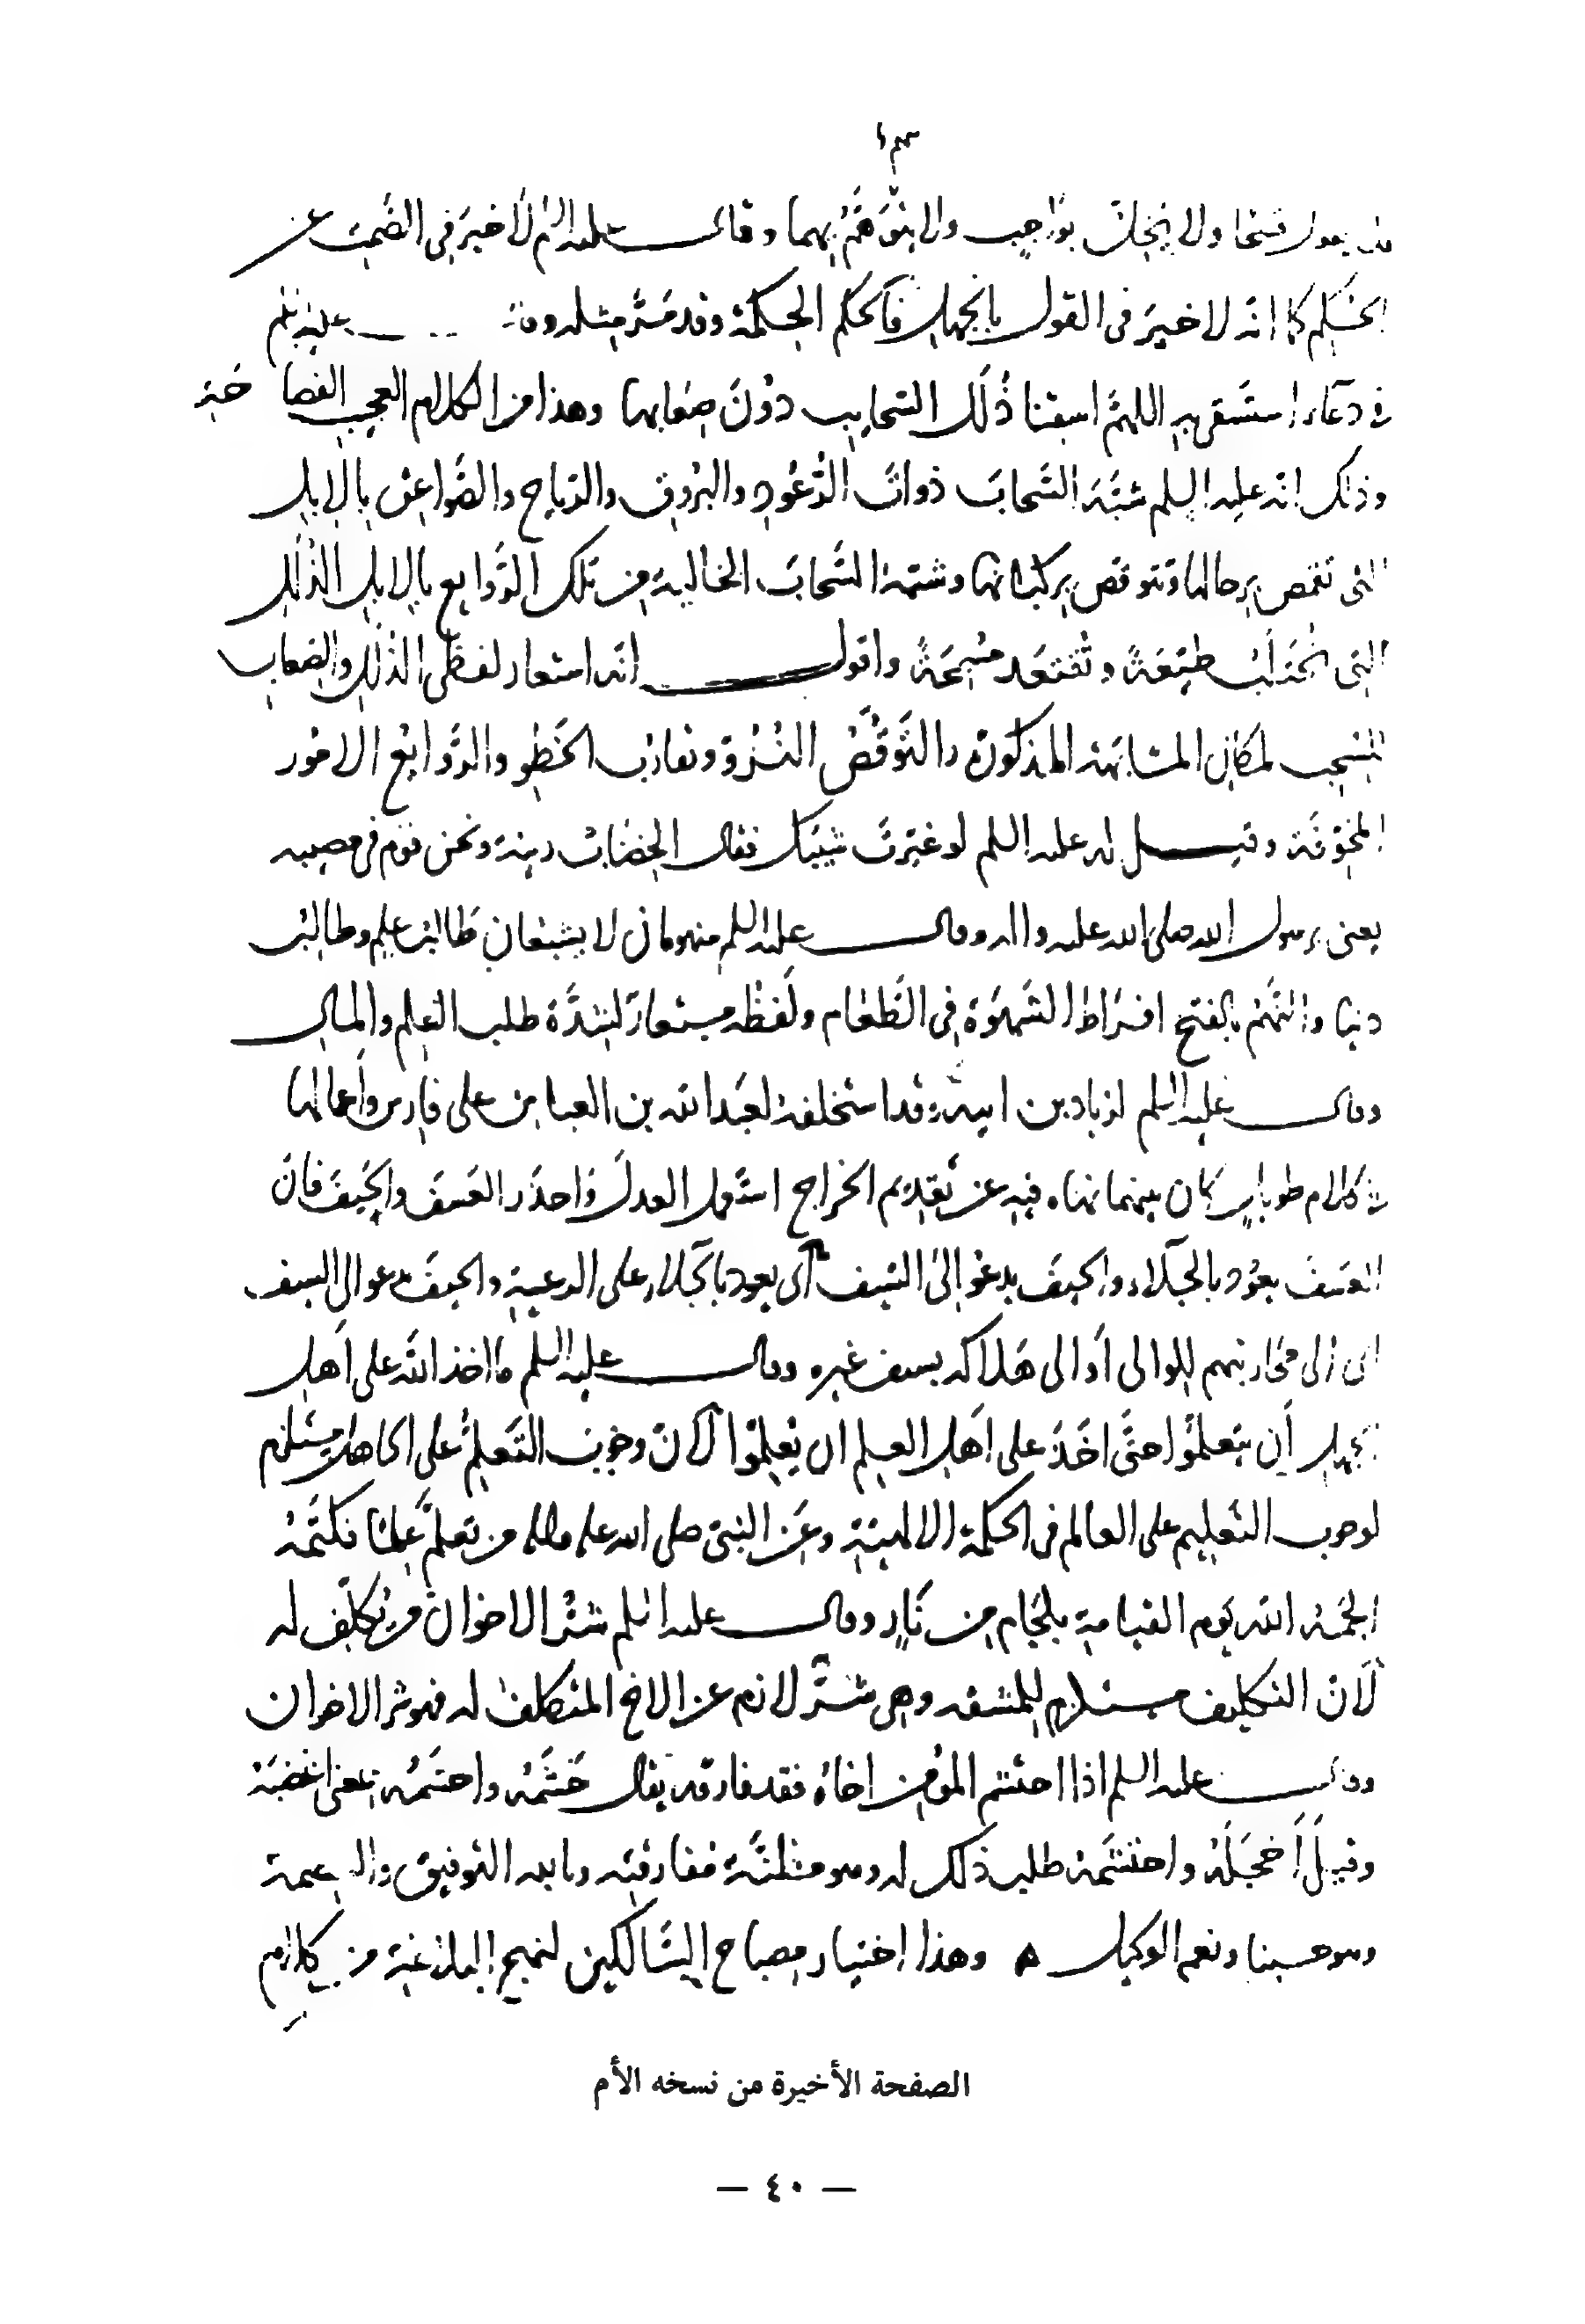 ولا يتوهم بهما وقال عليه السلم لا خير في الصمت عن
الحكم كما انه لا خير في القول بالجهل فالحكم الحكمة وقد مر مثله وقال عليه السلم
في دعاء استسقى به اللهم اسقنا ذلل السحايب دون صعابها وهذا من الكلام العجيب الفصاحة
وذلك انه عليه السلم شبه السحاب ذوات الرعود والبروق والرياح والصواعق بالابل
التي تقمص برحالها وتتوقص بركبانها وشبه السحاب الخالية من تلك الروايع بالابل الذلل
التي تحتلب طيعة وتقتعد مسمحة واقول انه استعار لفظي الذلل والصعاب
للسحب لمكان المشابهة المذكورة والتوقص النزو وتقارب الخطو والروايع الامور
المخوفة وقيل له عليه السلم لو غيرت شيبك فقال الخضاب زينة ونحن قوم في مصيبه
يعنى برسول الله صلى الله عليه واله وقال عليه السلم منهومان لا يشبعان طالب علم وطالب
دنيا والنهم بالفتح افراط الشهوة في الطعام ولفظه مستعار لشدة طلب العلم والمال
وقال عليه السلم لزياد بن ابيه وقد استخلفه لعبد الله بن العباس على فارس واعمالها
في كلام طويل كان بينهما نهاه فيه عن تقديم الخراج استعمل العدل واحذر العسف والحيف فان
العسف يعود بالجلاء والحيف يدعو الى السيف اى يعود بالجلاء على الرعية والحيف يدعو الى السيف
اى الى محاربتهم للوالى أو الى هلاكه بسيف غيره وقال عليه السلم ما اخذ الله على أهل
الجهل أن يتعلموا حتى اخذ على أهل العلم ان يعلموا لان وجوب التعلم على الجاهل مستلزم
لوجوب التعليم على العالم في الحكمة الالهية وعن النبي صلى الله عليه واله من تعلم علما فكتمه
الجمه الله يوم القيامة بلجام من نار وقال عليه السلم شر الاخوان من تكلف له
لان التكليف مستلزم للمشقه وهي شر لازم عن الاخ المتكلف له فهو شر الاخوان
وقال عليه السلم اذا احتشم المؤمن اخاه فقد فارقه يقال حشمه واحشمه بمعنى اغضبه
وقيل أخجله واحتشمه طلب ذلك له وهو مظنة مفارقته وبالله التوفيق والعصمة
وهو حسبنا ونعم الوكيل ۵ وهذا اختيار مصباح السالكين لنهج البلاغة من كلام
الصفحة الأخيرة من نسخه الأم
— ٤٠ —